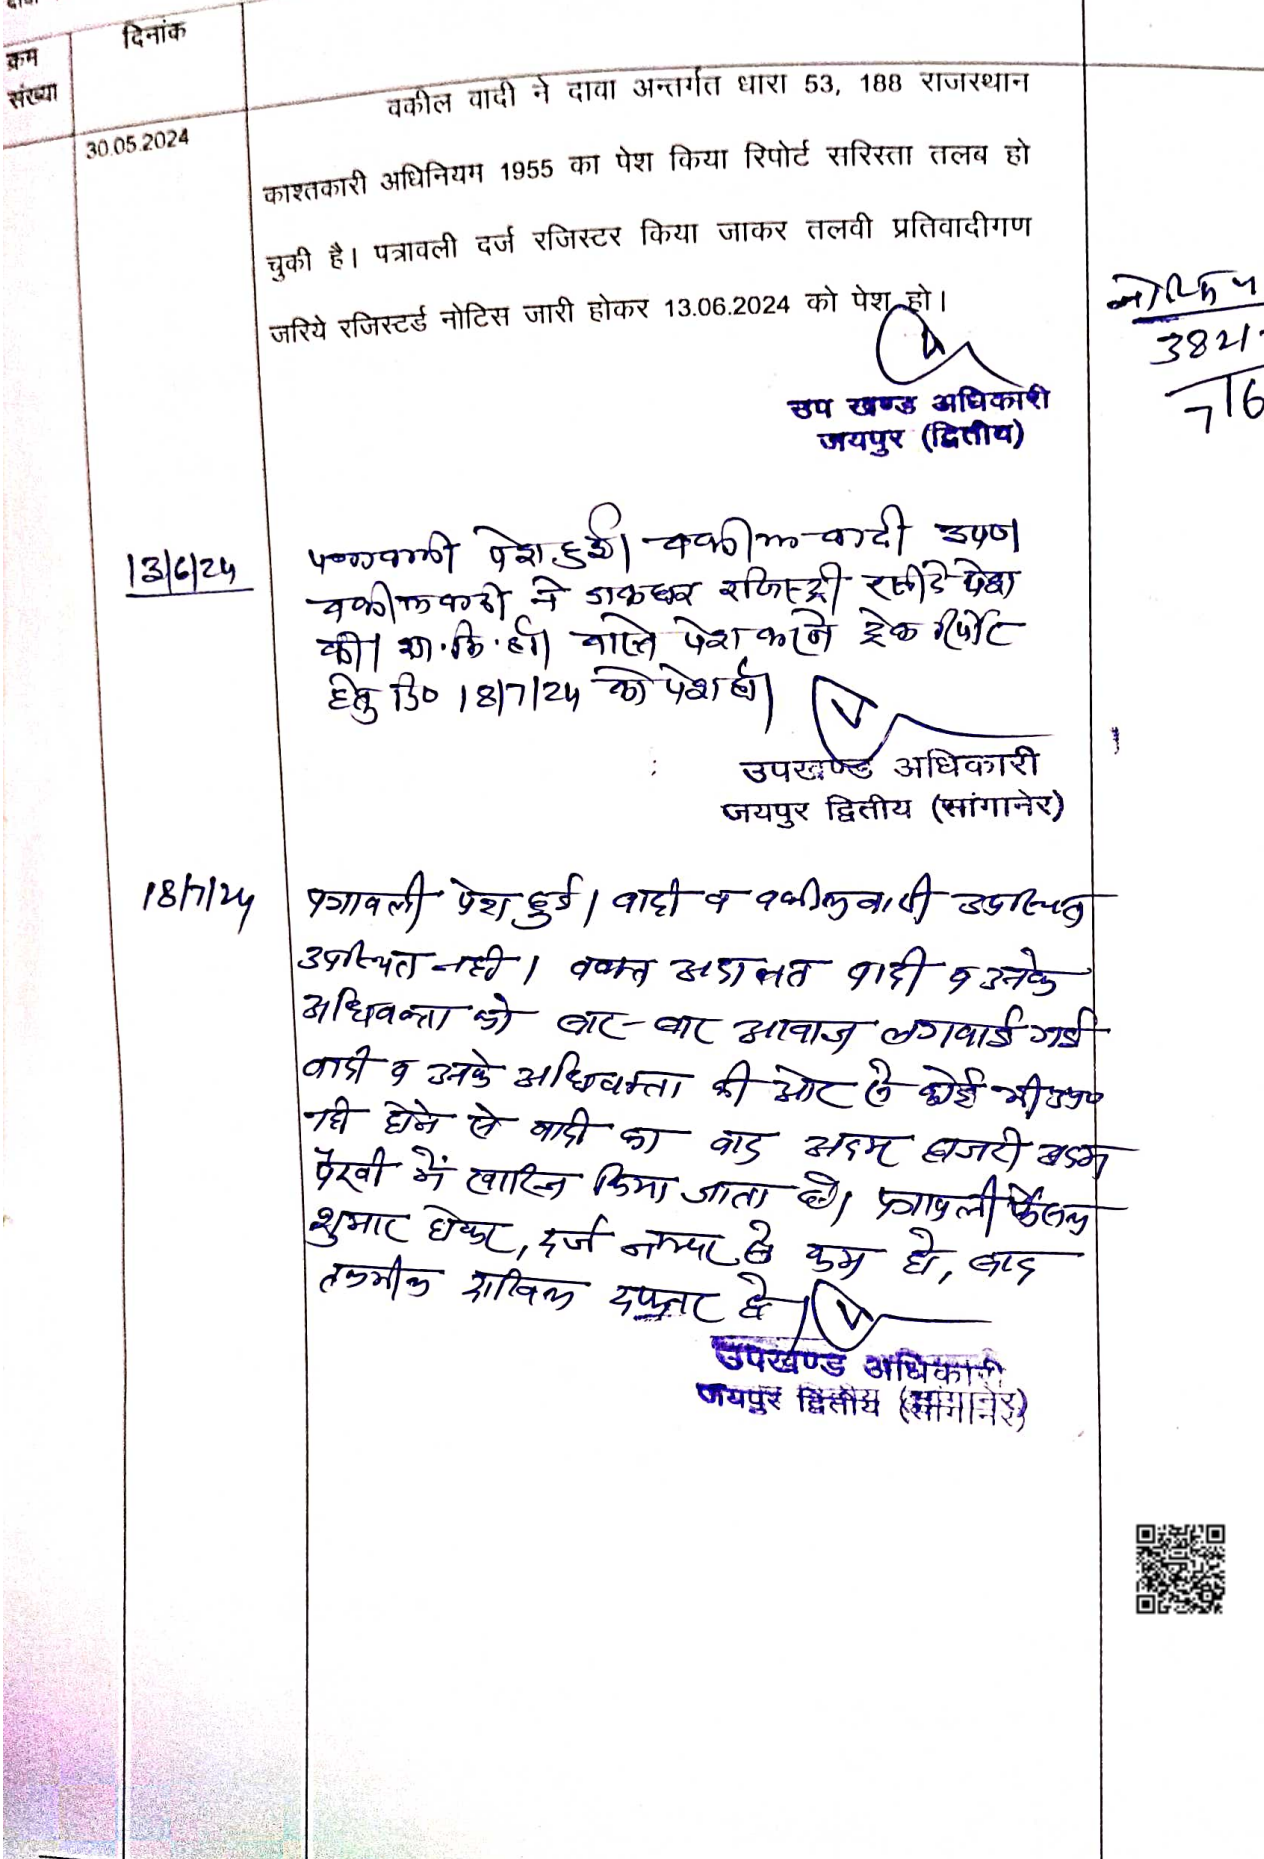 क्रम
संख्या
दिनांक
30.05.2024
वकील वादी ने दावा अन्तर्गत धारा 53, 188 राजस्थान
काश्तकारी अधिनियम 1955 का पेश किया रिपोर्ट सरिस्ता तलब हो
चुकी है। पत्रावली दर्ज रजिस्टर किया जाकर तलवी प्रतिवादीगण
जरिये रजिस्टर्ड नोटिस जारी होकर 13.06.2024 को पेश हो।
उप खण्ड अधिकारी
जयपुर (द्वितीय)
3821
716
13/6/24
पत्रावली पेश हुई। वकील वादी उप०
वकील वादी ने डाकघर रजिस्ट्री रसीदे पेश
की। शा.मि.हो। वास्ते पेश करने ट्रेक रिपोर्ट
हेतु दि० 18/7/24 को पेश हो।
उपखण्ड अधिकारी
जयपुर द्वितीय (सांगानेर)
18/7/24
पत्रावली पेश हुई। वादी व वकील वादी उपस्थित
उपस्थित नही। वक्त अदालत वादी व उनके
अधिवक्ता को बार-बार आवाज लगवाई गई
वादी व उनके अधिवक्ता की ओर से कोई भी उप०
नही होने से वादी का वाद अदम हाजरी अदम
पैरवी में खारिज किया जाता है। पत्रावली फैसल
शुमार होकर, दर्ज नम्बर से कम हो, बाद
तकमील दाखिल दफ्तर हो।
उपखण्ड अधिकारी
जयपुर द्वितीय (सांगानेर)